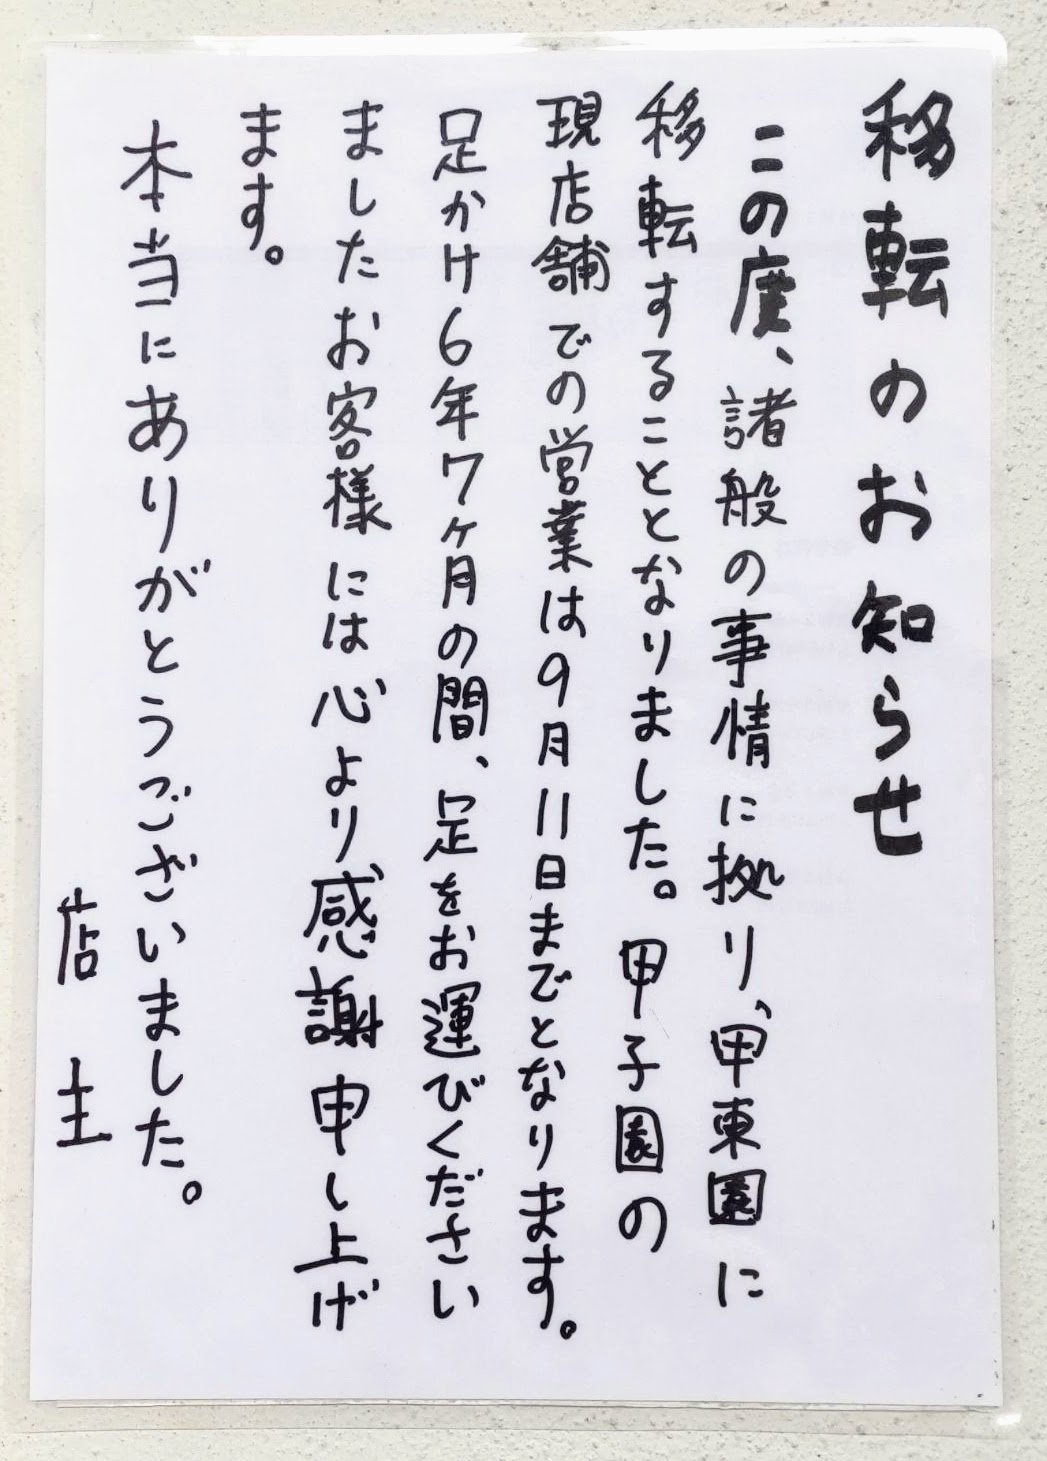 移転のお知らせ
この度、諸般の事情に拠り、甲東園に
移転することとなりました。甲子園の
現店舗での営業は9月11日までとなります。
足かけ6年7ヶ月の間、足をお運びください
ましたお客様には心より感謝申し上げ
ます。
本当にありがとうございました。
店主